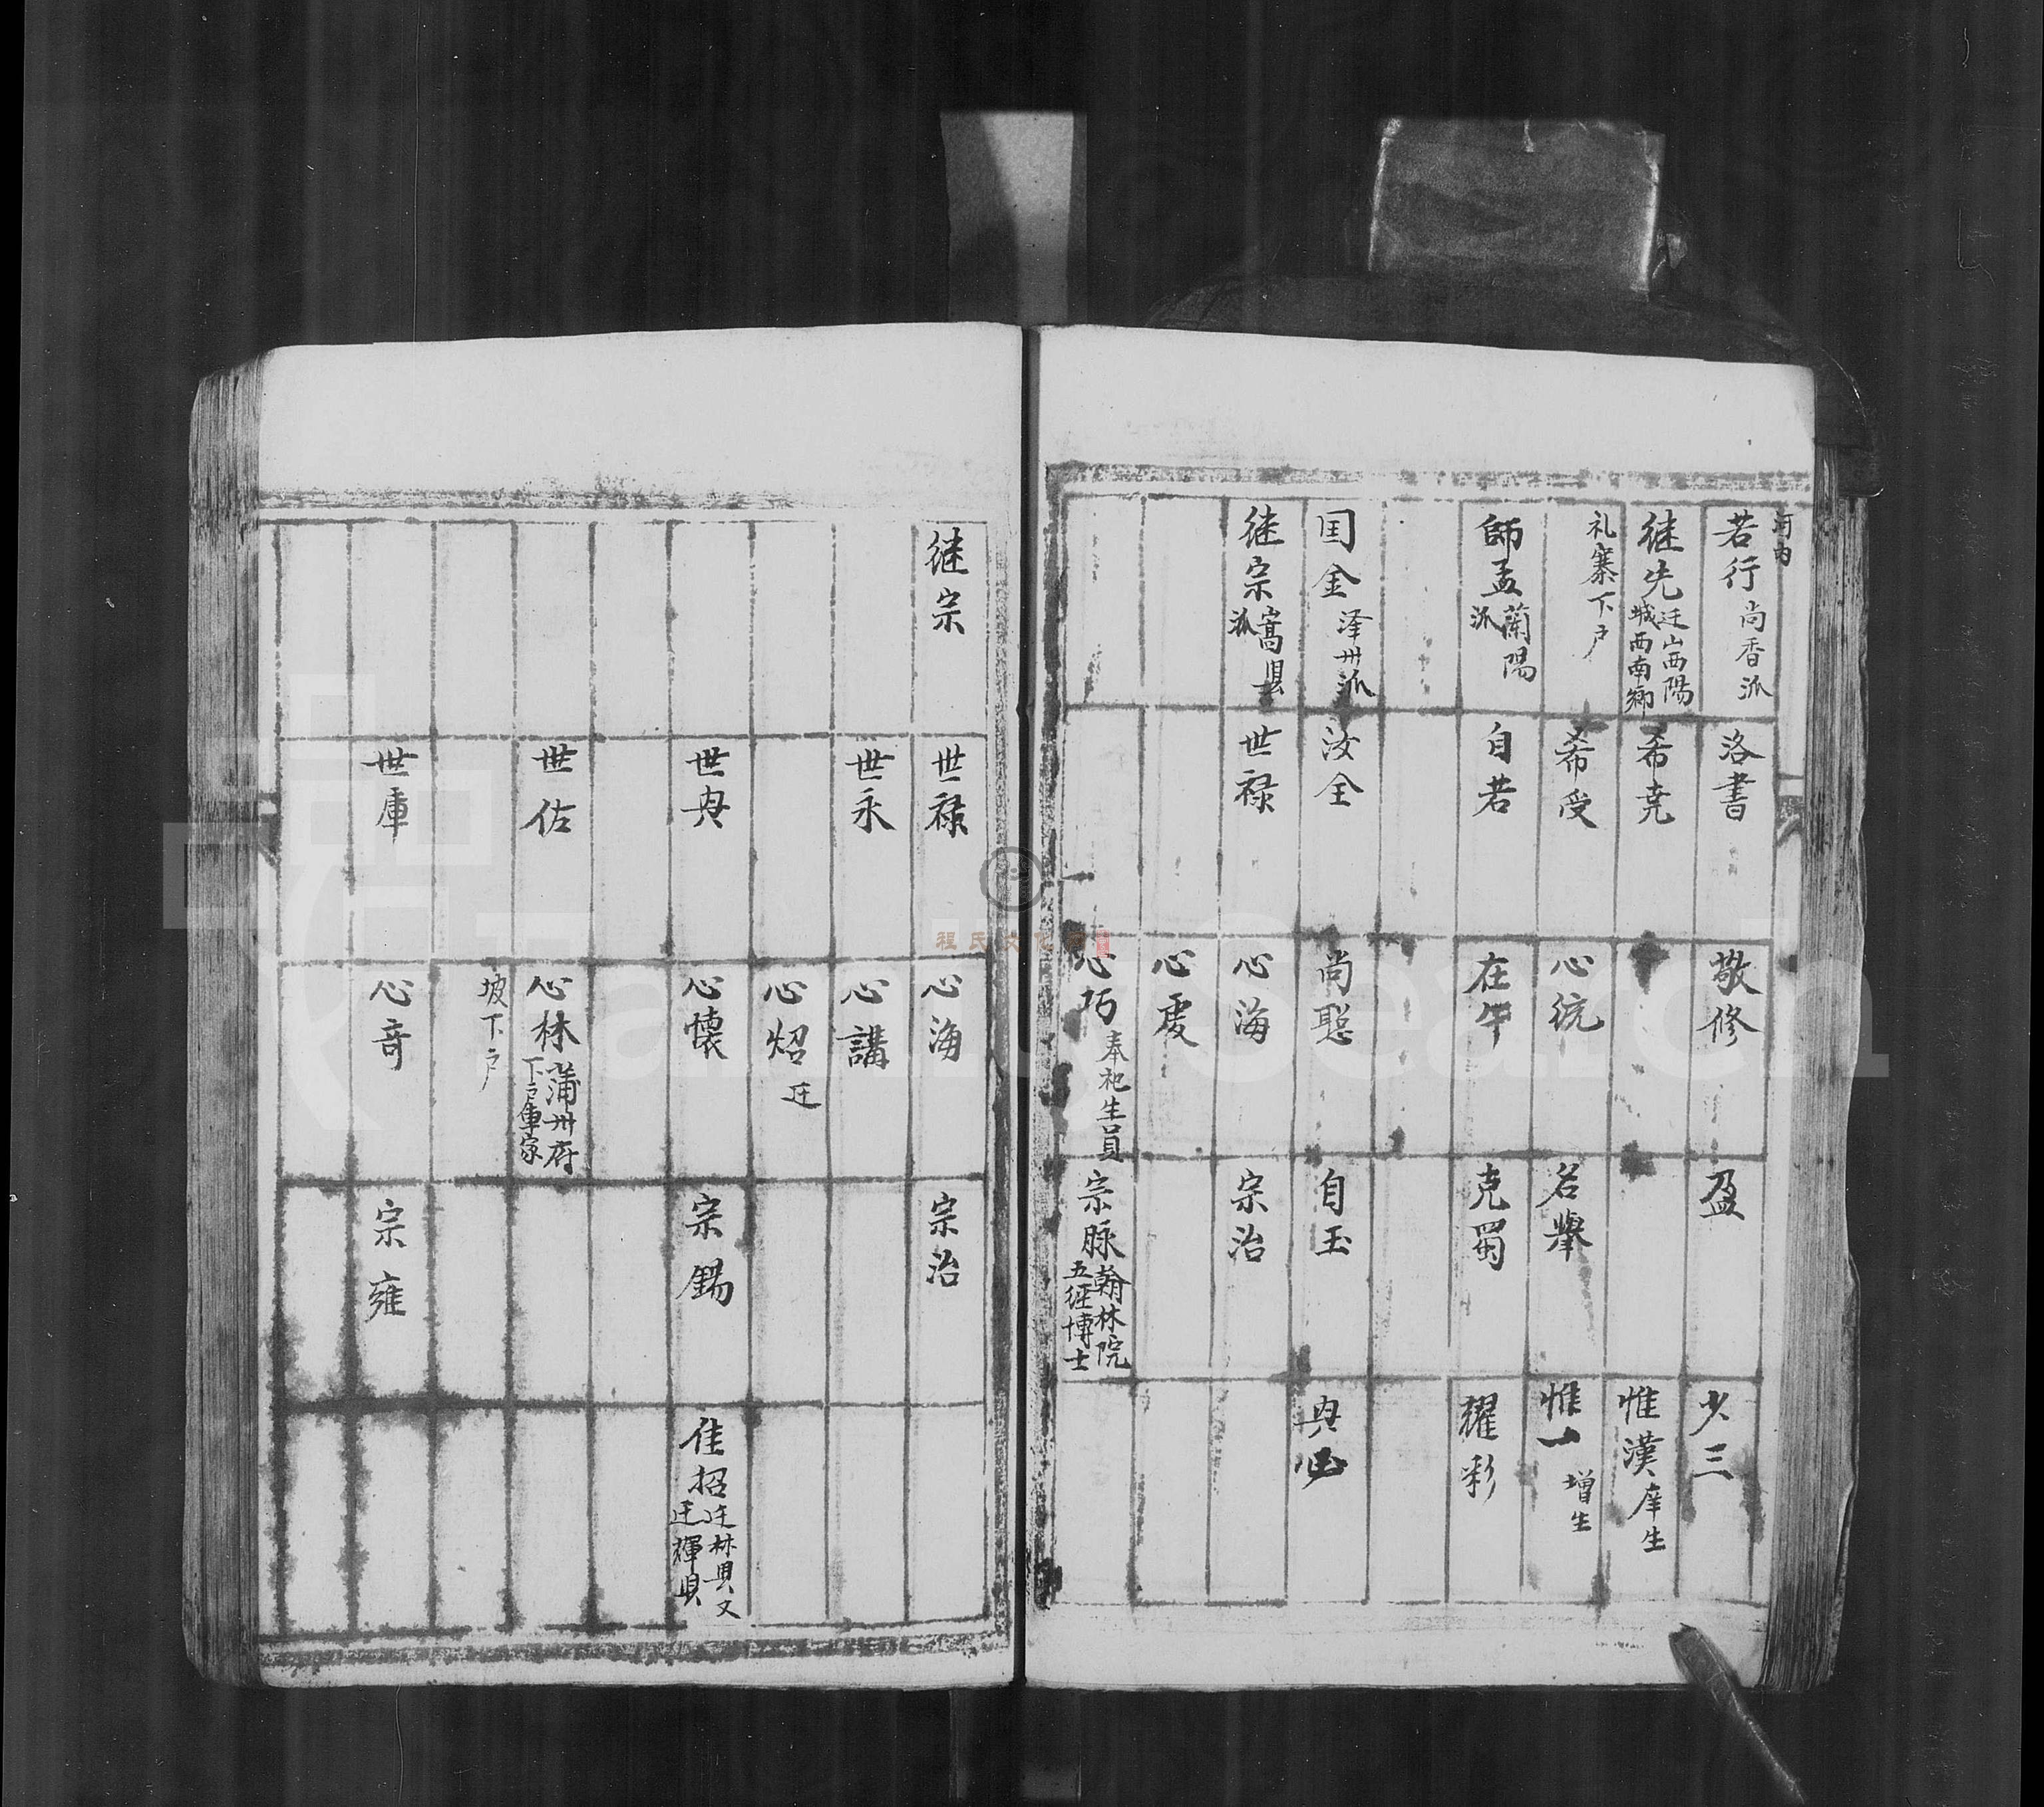 河内
若行 尚香派
洛書
敬修
盈
少三
继先 迁山西陽
城西南鄉
希堯
惟漢 庠生
礼寨下户
希受
心統
名舉
惟一 增生
師孟 蘭陽
派
自若
在午
克蜀
耀彩
国金 泽州派
汝全
尚聪
自玉
继宗 嵩县
派
世禄
心海
宗治
心虔
心巧 奉祀生員
宗脉 翰林院
五经博士
继宗
世禄
心海
宗治
世永
心講
心炤 迁
世典
心懷
宗錫
佳招
世佐
心林 蒲州府
坡下户
世庫
心奇
宗雍
程氏文化
FamilySearch